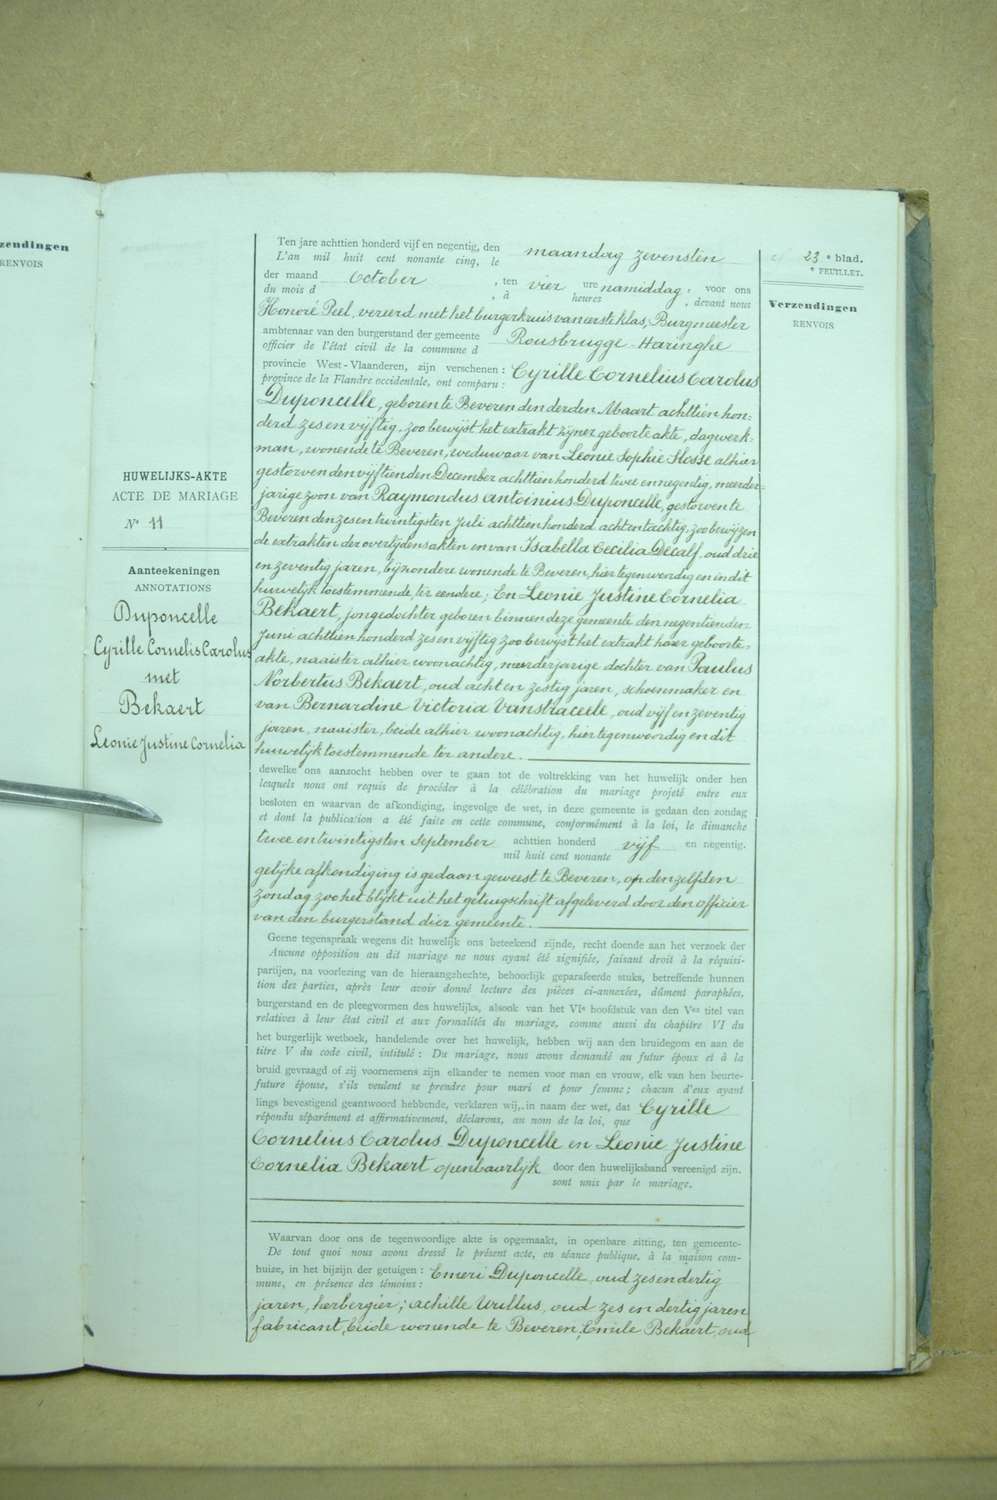 rzendingen
RENVOIS
HUWELIJKS-AKTE
ACTE DE MARIAGE
N° 11
Aanteekeningen
ANNOTATIONS
Duponcelle
Cyrille Cornelis Carolus
met
Bekaert
Leonie Justine Cornelia
Ten jare achttien honderd vijf en negentig, den maandag zevensten
L'an mil huit cent nonante cinq, le
der maand October, ten vier ure namiddag, voor ons
du mois d , à heures , devant nous
Honoré Peel, vereerd met het burgerkruis van eerste klas, Burgmeester
ambtenaar van den burgerstand der gemeente Rousbrugge-Haringhe
officier de l'état civil de la commune d
provincie West-Vlaanderen, zijn verschenen : Cyrille Cornelius Carolus
province de la Flandre occidentale, ont comparu :
Duponcelle, geboren te Beveren den derden Maart achttien hon-
derd zes en vijftig, zoo bewijst het extrakt zijner geboorte akte, dagwerk-
man, wonende te Beveren, weduwaar van Leonie Sophie Hosse alhier
gestorven den vijftienden December achttien honderd twee en negentig, meerder-
jarige zoon van Raymondus Antoinius Duponcelle, gestorven te
Beveren den zes en twintigsten Juli achttien honderd acht en tachtig, zoo bewijzen
de extrakten der overlijdensakten en van Isabella Cecilia Decalf, oud drie
en zeventig jaren, bijzondere wonende te Beveren, hier tegenwoordig en in dit
huwelijk toestemmende, ter eendere; En Leonie Justine Cornelia
Bekaert, jongedochter geboren binnen deze gemeente den negentienden
Juni achttien honderd zes en vijftig zoo bewijst het extrakt haer geboorte-
akte, naaister alhier woonachtig, meerderjarige dochter van Paulus
Norbertus Bekaert, oud acht en zestig jaren, schoenmaker en
van Bernardine Victoria Vanstraceele, oud vijf en zeventig
jaren, naaister, beide alhier woonachtig, hier tegenwoordig en dit
huwelijk toestemmende ter andere.
dewelke ons aanzocht hebben over te gaan tot de voltrekking van het huwelijk onder hen
lesquels nous ont requis de procéder à la célébration du mariage projeté entre eux
besloten en waarvan de afkondiging, ingevolge de wet, in deze gemeente is gedaan den zondag
et dont la publication a été faite en cette commune, conformément à la loi, le dimanche
twee en twintigsten September achttien honderd vijf en negentig.
mil huit cent nonante
gelijke afkendiging is gedaan geweest te Beveren, op denzelfden
zondag zoo het blijkt uit het getuigschrift afgeleverd door den officier
van den burgerstand dier gemeente.
Geene tegenspraak wegens dit huwelijk ons beteekend zijnde, recht doende aan het verzoek der
Aucune opposition au dit mariage ne nous ayant été signifiée, faisant droit à la réquisi-
partijen, na voorlezing van de hieraangehechte, behoorlijk geparafeerde stuks, betreffende hunnen
tion des parties, après leur avoir donné lecture des pièces ci-annexées, dûment paraphées,
burgerstand en de pleegvormen des huwelijks, alsook van het VIe hoofdstuk van den Ven titel van
relatives à leur état civil et aux formalités du mariage, comme aussi du chapitre VI du
het burgerlijk wetboek, handelende over het huwelijk, hebben wij aan den bruidegom en aan de
titre V du code civil, intitulé : Du mariage, nous avons demandé au futur époux et à la
bruid gevraagd of zij voornemens zijn elkander te nemen voor man en vrouw, elk van hen beurte-
future épouse, s'ils veulent se prendre pour mari et pour femme ; chacun d'eux ayant
lings bevestigend geantwoord hebbende, verklaren wij, in naam der wet, dat Cyrille
répondu séparément et affirmativement, déclarons, au nom de la loi, que
Cornelius Carolus Duponcelle en Leonie Justine
Cornelia Bekaert openbaarlijk door den huwelijksband vereenigd zijn.
sont unis par le mariage.
Waarvan door ons de tegenwoordige akte is opgemaakt, in openbare zitting, ten gemeente-
De tout quoi nous avons dressé le présent acte, en séance publique, à la maison com-
huize, in het bijzijn der getuigen : Emeri Duponcelle, oud zes en dertig
mune, en présence des témoins :
jaren, herbergier; Achille Wullus, oud zes en dertig jaren
fabricant, beide wonende te Beveren, Emile Bekaert, oud
23e blad.
e FEUILLET.
Verzendingen
RENVOIS